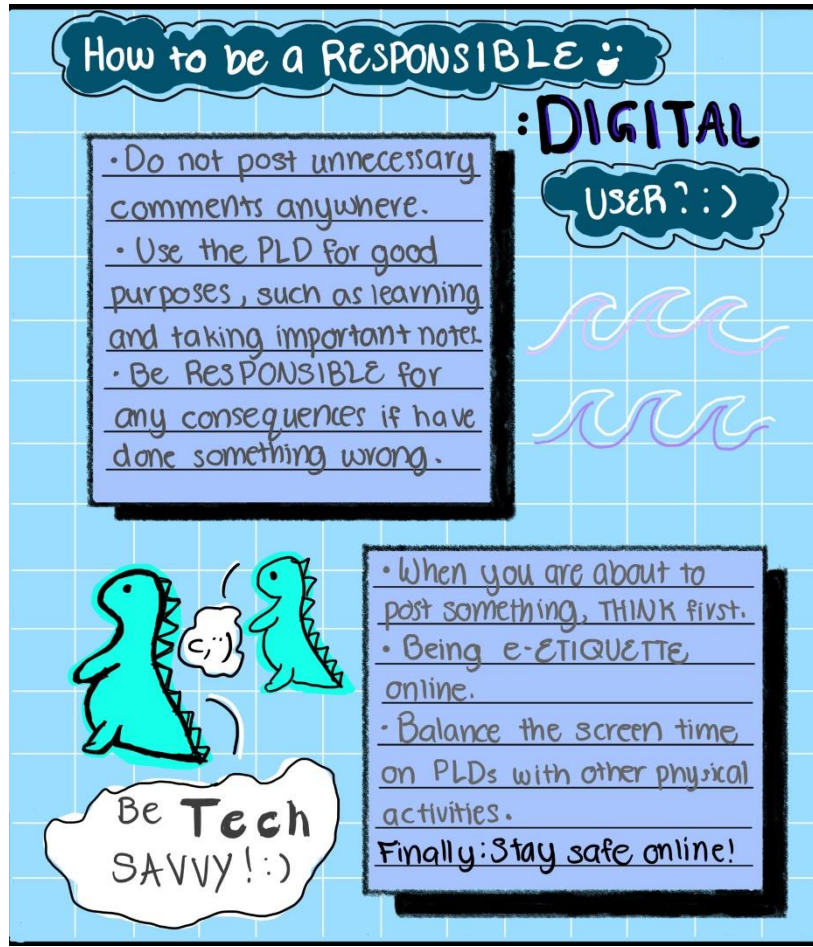 How to be a RESPONSIBLE
:DIGITAL
USER? :)
• Do not post unnecessary
comments anywhere.
• Use the PLD for good
purposes, such as learning
and taking important notes.
• Be RESPONSIBLE for
any consequences if have
done something wrong.
• When you are about to
post something, THINK first.
• Being e-ETIQUETTE
online.
• Balance the screen time
on PLDs with other physical
activities.
Finally: Stay safe online!
Be Tech
SAVVY! :)